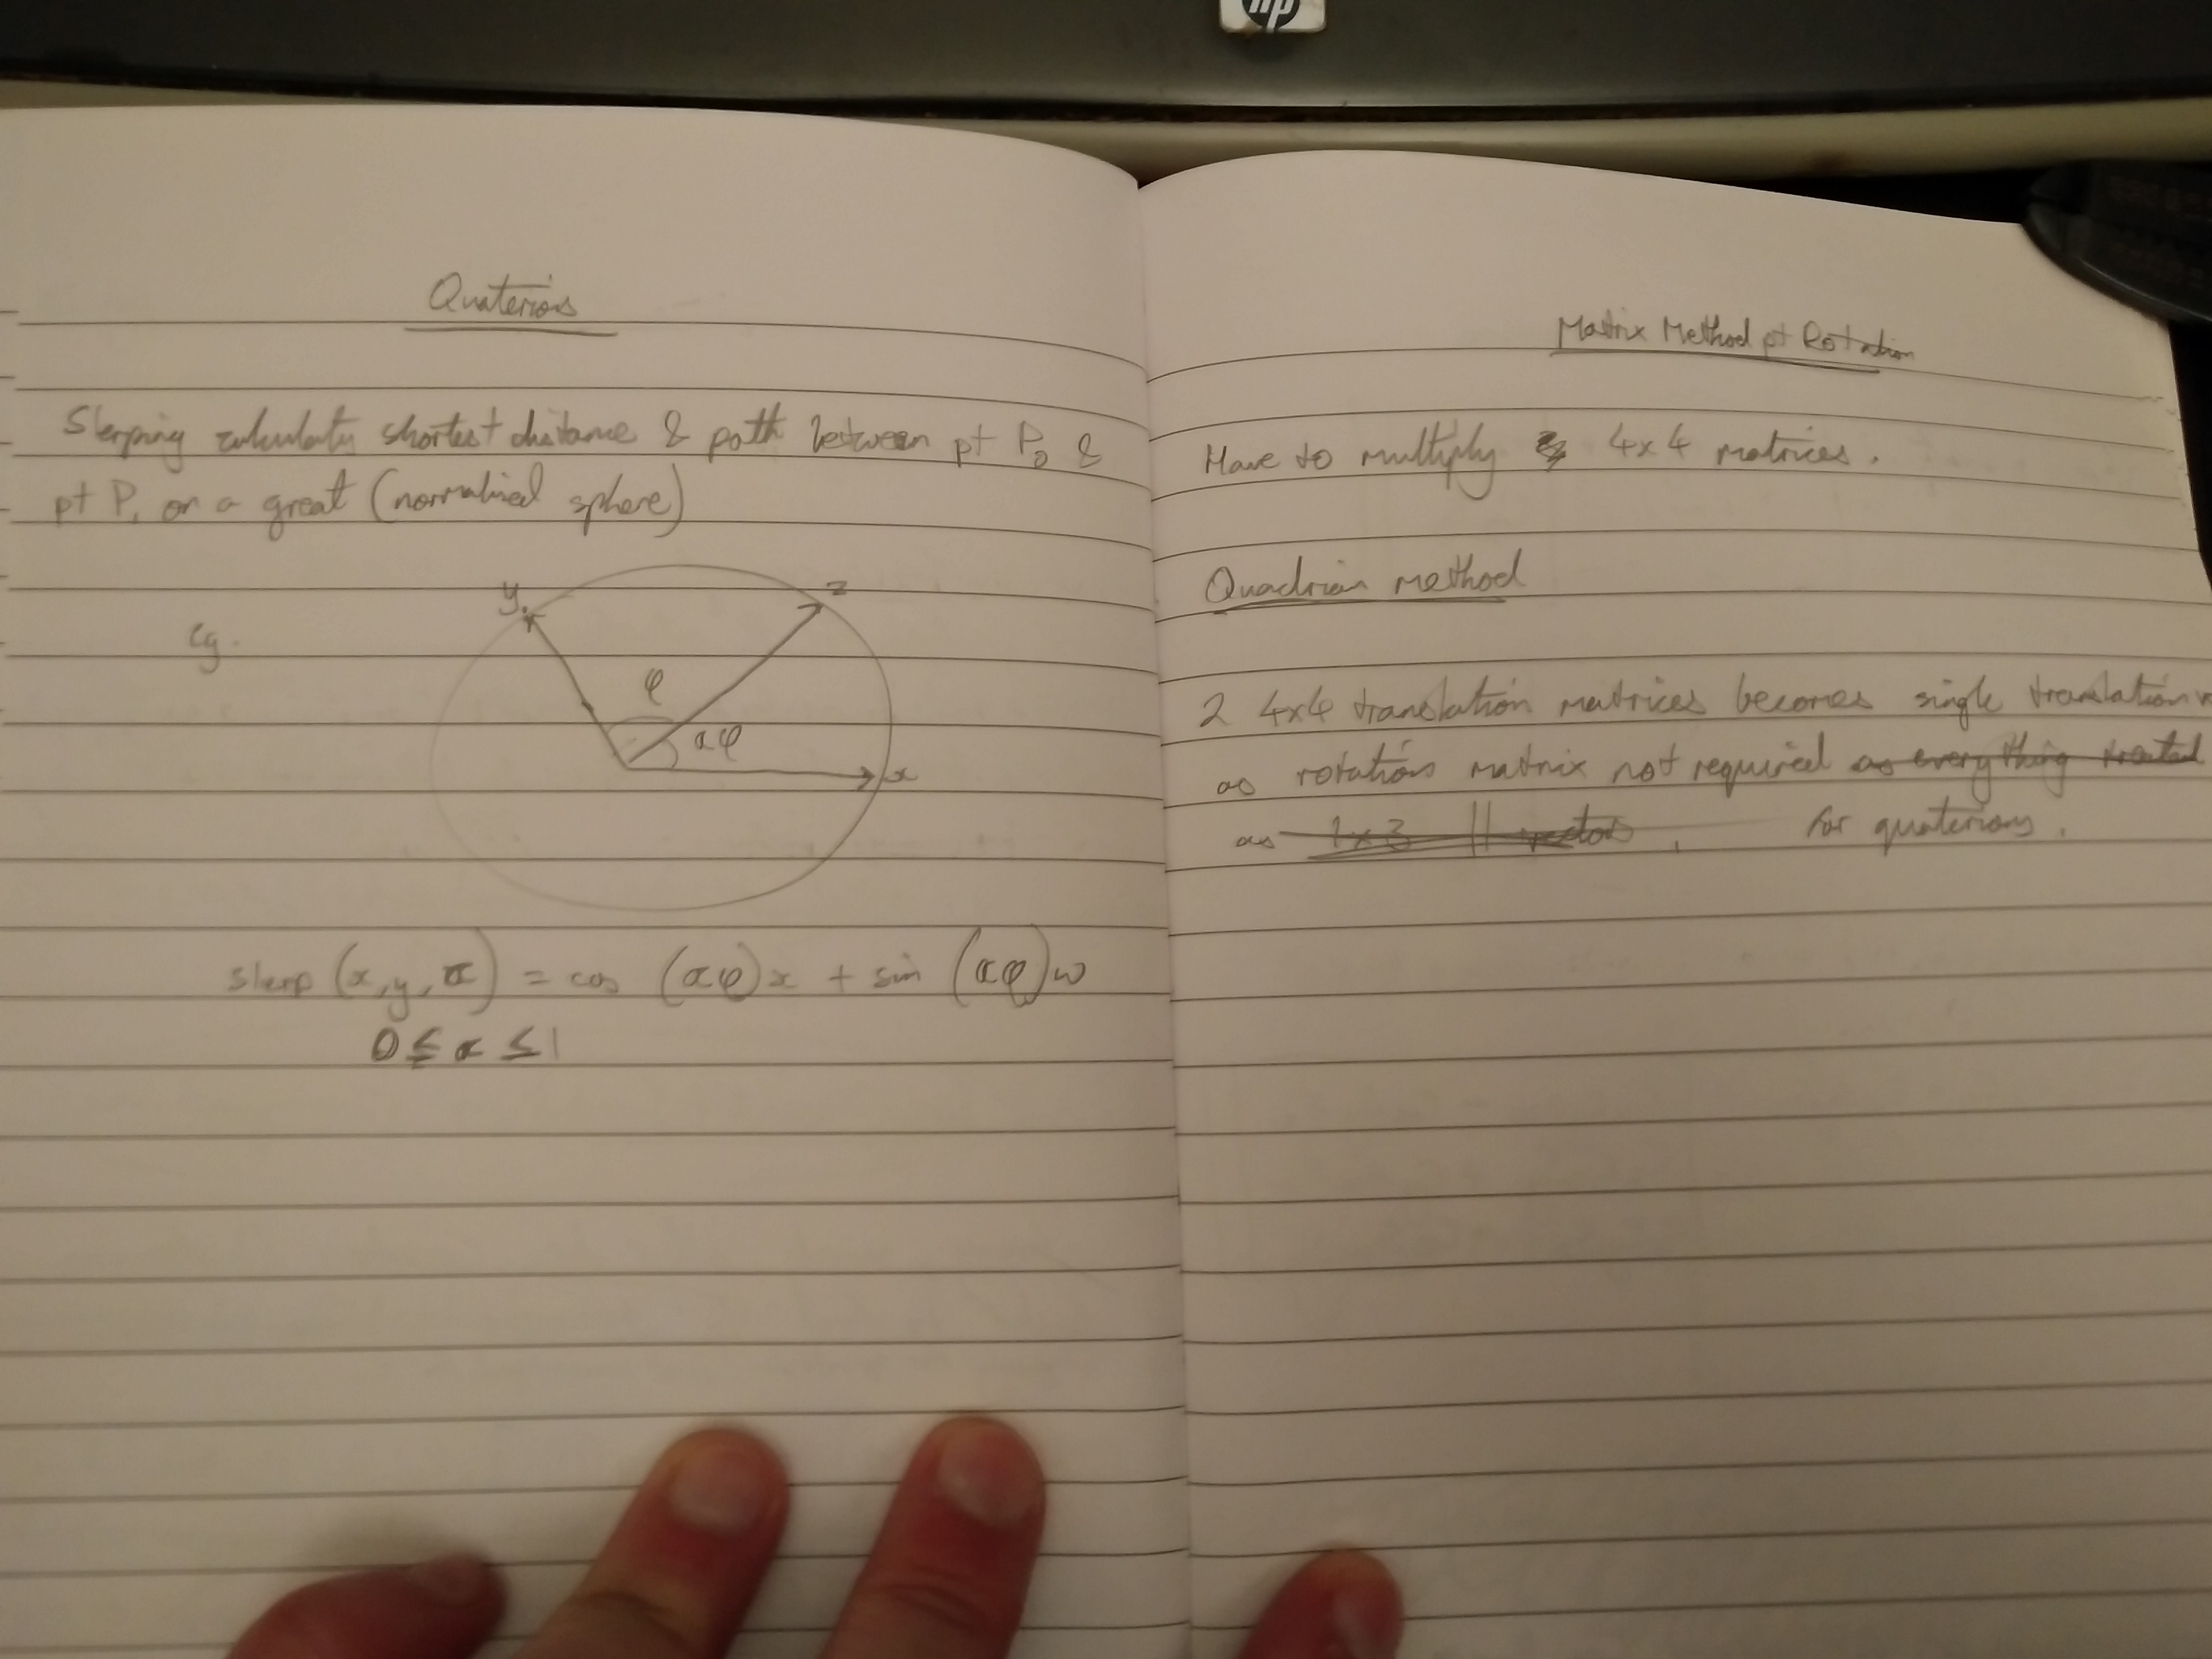 hp
Quaterions
Slerping calculates shortest distance & path between pt P₀ &
pt P₁ on a great (normalised sphere)
eg.
y
z
φ
αφ
x
slerp (x, y, α) = cos (αφ)x + sin (αφ)w
0 ≤ α ≤ 1
Matrix Method pt Rotation
Have to multiply 4x4 matrices.
Quadrian method
2 4x4 translation matrices becomes single translation
as rotation matrix not required as everything treated
as 1x3 || vectors, for quaterions.